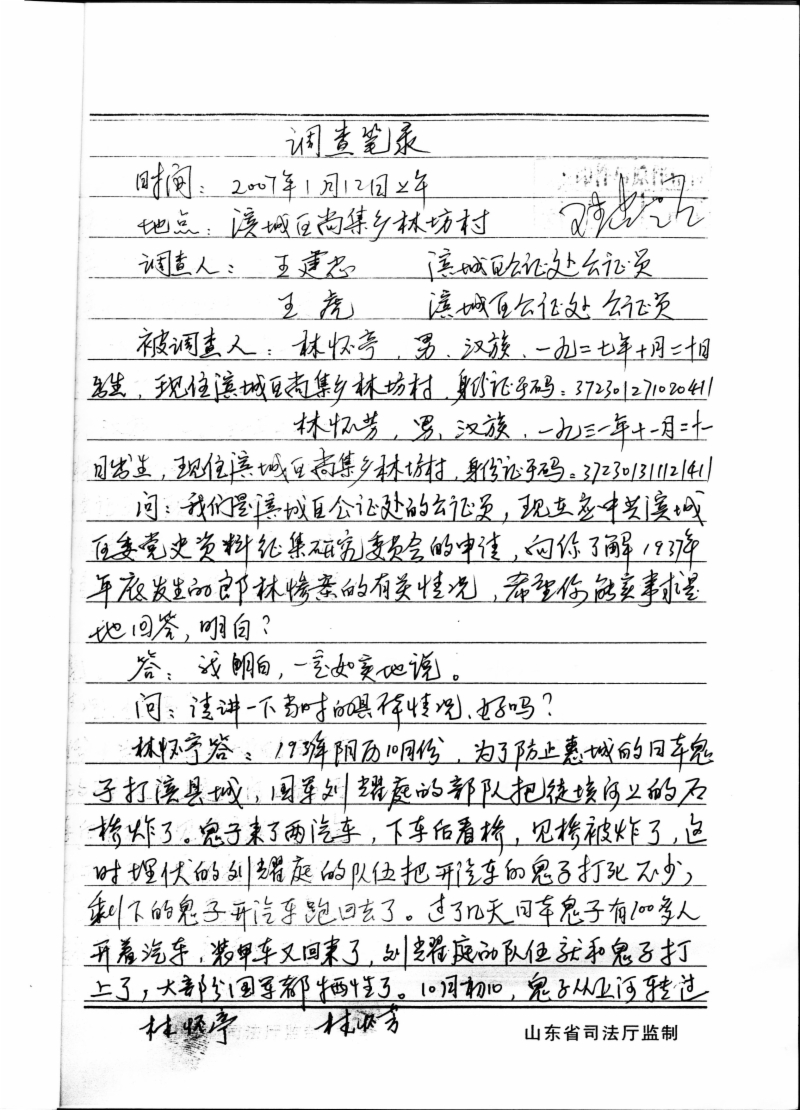 调查笔录
时间：2007年1月12日上午
地点：滨城区尚集乡林坊村
调查人：王建忠 滨城区公证处公证员
王虎 滨城区公证处公证员
被调查人：林怀亭，男，汉族，一九二七年十月二十日
出生，现住滨城区尚集乡林坊村，身份证号码：372301271020411
林怀芳，男，汉族，一九三一年十一月二十一
日出生，现住滨城区尚集乡林坊村，身份证号码：372301311121411
问：我们是滨城区公证处的公证员，现在应中共滨城
区委党史资料征集研究委员会的申请，向你了解1937年
年底发生的郎林惨案的有关情况，希望你能实事求是
地回答，明白？
答：我明白，一定如实地说。
问：请讲一下当时的具体情况，好吗？
林怀亭答：1937年阴历10月份，为了防止惠城的日军鬼
子打滨县城，国军刘耀庭的部队把徒骇河上的石
桥炸了。鬼子来了两汽车，下车后看桥，见桥被炸了，这
时埋伏的刘耀庭的队伍把开汽车的鬼子打死不少，
剩下的鬼子开汽车跑回去了。过了几天日军鬼子有100多人
开着汽车，装甲车又回来了，刘耀庭的队伍就和鬼子打
上了，大部分国军都牺牲了。10月初10，鬼子从上河转过
林怀亭 林怀芳
山东省司法厅监制